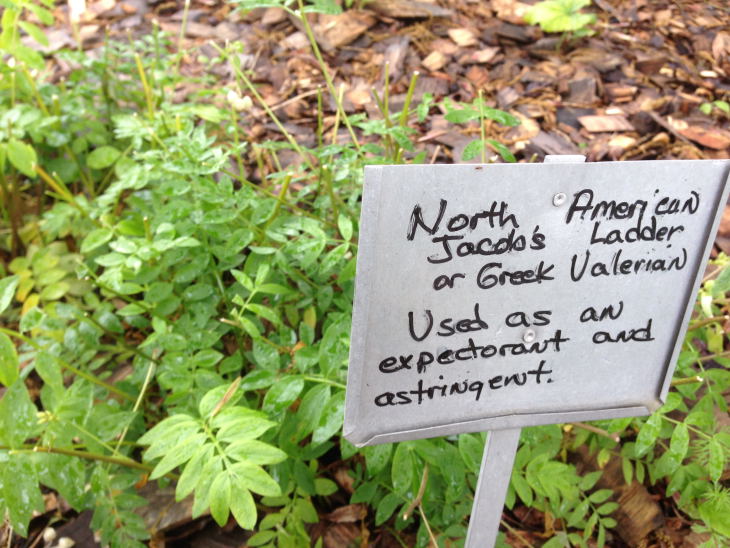 North American
Jacob's Ladder
or Greek Valerian
Used as an
expectorant and
astringent.